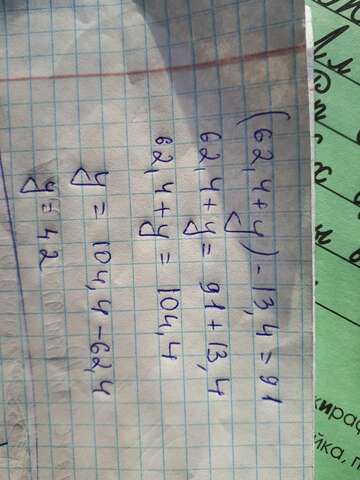 (62,4+y)-13,4=91
62,4+y= 91+13,4
62,4+y= 104,4
y= 104,4-62,4
y=42